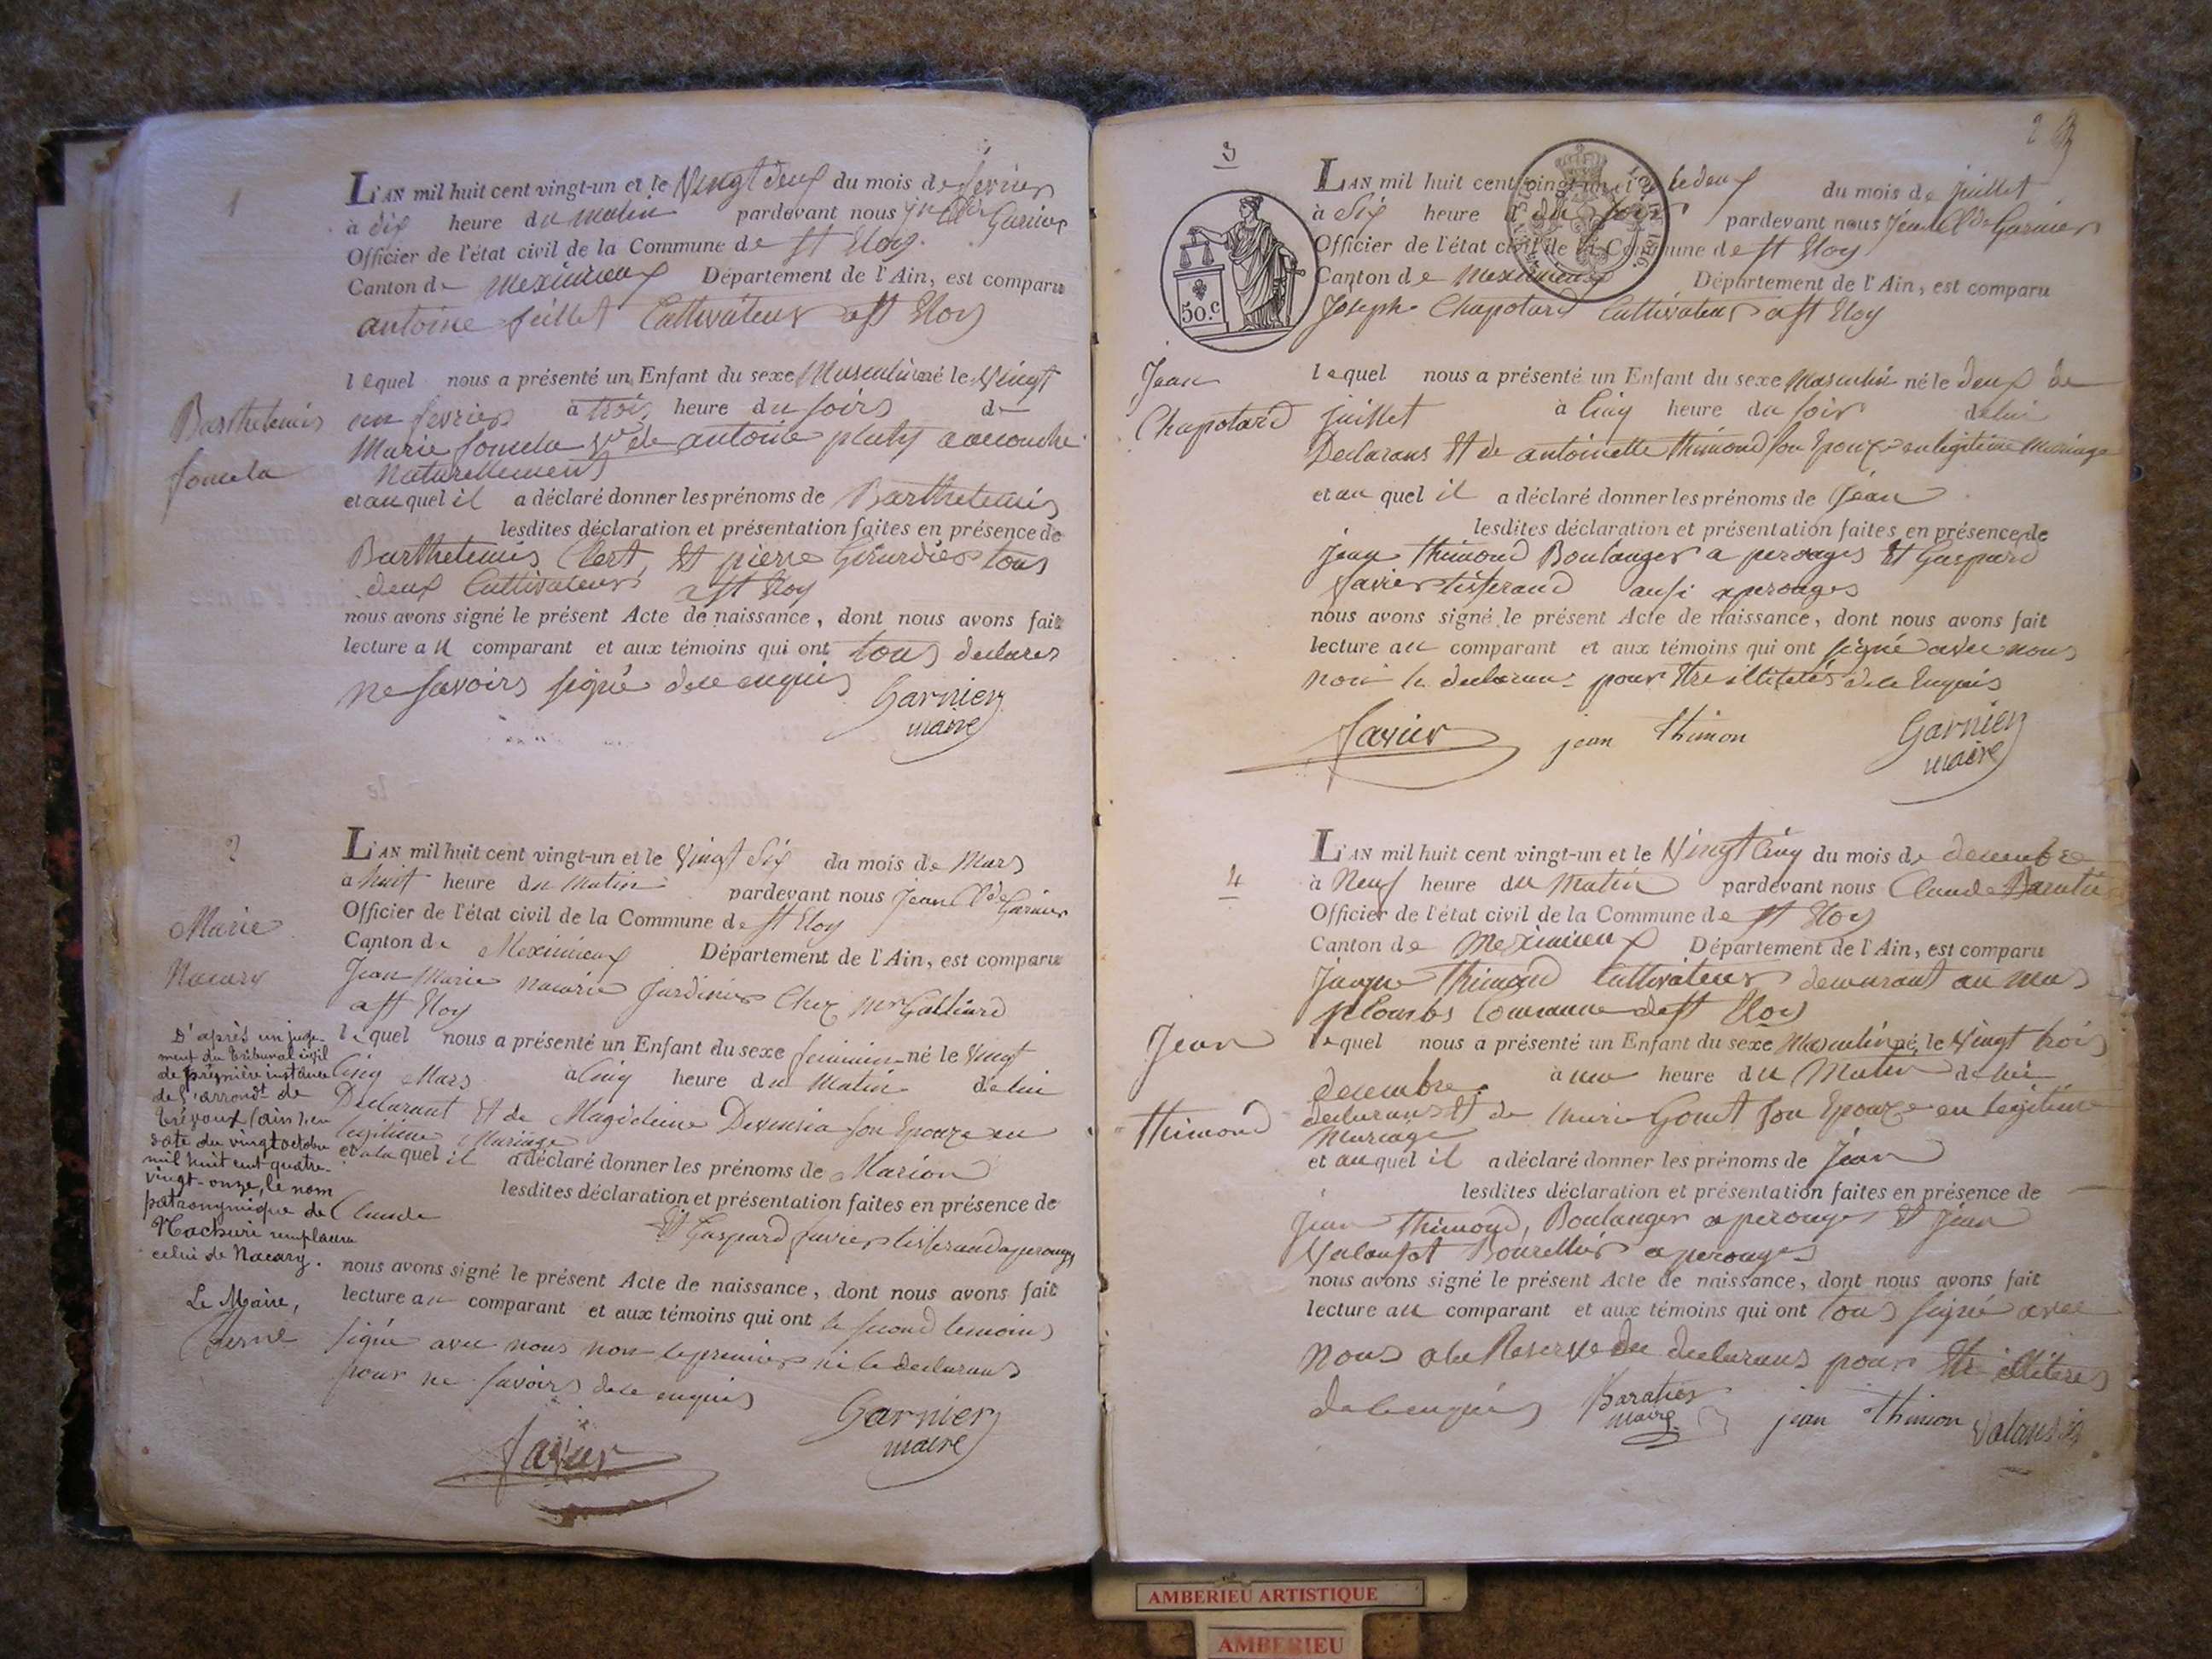 1
L'AN mil huit cent vingt-un et le Vingt deux du mois de fevrier
à dix heure du matin pardevant nous jn Cde Garnier
Officier de l'état civil de la Commune de St Eloy
Canton de meximieux Département de l'Ain, est comparu
antoine feillet Cultivateur a St Eloy
lequel nous a présenté un Enfant du sexe Musculin né le Vingt
un fevrier à trois heure du soirs de
Marie fomela Ve de antoine pluty accouché
Naturellement
et au quel il a déclaré donner les prénoms de Barthelemis
lesdites déclaration et présentation faites en présence de
Barthelemis Clert, Et pierre Girurdier tous
deux Cultivateurs a St Eloy
nous avons signé le présent Acte de naissance, dont nous avons fait
lecture au comparant et aux témoins qui ont tous declarer
ne savoirs signé de ce enquis
Garnier
maire
Barthelemis
fomela
2
L'AN mil huit cent vingt-un et le Vingt Six du mois de Mars
à huit heure du Matin pardevant nous Jean Cde Garnier
Officier de l'état civil de la Commune de St Eloy
Canton de Meximieux Département de l'Ain, est comparu
Jean Marie nacarie Jardinier Chez mr Galliard
a St Eloy
lequel nous a présenté un Enfant du sexe feminin né le Vingt
Cinq Mars à Cinq heure du Matin de lui
Declarant Et de Magdeleine son Epouze en
legitime Mariage
et a la quel il a déclaré donner les prénoms de Marion
lesdites déclaration et présentation faites en présence de
Claude
Et Gaspard favier tisserand a perouges
nous avons signé le présent Acte de naissance, dont nous avons fait
lecture au comparant et aux témoins qui ont le second temoins
signé avec nous non le premier ni le declarans
pour ne savoirs de ce enquis
Garnier
maire
favier
Marie
Nacary
D'après un juge-
ment du tribunal civil
de première instance
de l'arrondt de
Trévoux (ain), en
date du vingt octobre
mil huit cent quatre-
vingt-onze, le nom
patronymique de
Nachuri remplacera
celui de Nacary.
Le Maire,
2
3
50.c
1816
L'AN mil huit cent vingt-un et le deux du mois de juillet
à Six heure du soir pardevant nous Jean Cde Garnier
Officier de l'état civil de la Commune de St Eloy
Canton de meximieux Département de l'Ain, est comparu
Joseph Chapotard Cultivateur a St Eloy
lequel nous a présenté un Enfant du sexe Masculin né le deux de
juillet à Cinq heure du soir de lui
Declarans Et de antoinette thimond son Epouze en legitime Mariage
et au quel il a déclaré donner les prénoms de Jean
lesdites déclaration et présentation faites en présence de
jean thimond Boulanger a perouges Et Gaspard
favier tisserand ausi a perouges
nous avons signé le présent Acte de naissance, dont nous avons fait
lecture au comparant et aux témoins qui ont signé avec nous
non le declarans pour Etre de ce Enquis
favier
jean thimon
Garnier
maire
Jean
Chapotard
4
L'AN mil huit cent vingt-un et le Vingt Cinq du mois de decembre
à Neuf heure du Matin pardevant nous Claude Baratier
Officier de l'état civil de la Commune de St Eloy
Canton de Meximieux Département de l'Ain, est comparu
Thimond Cultivateur demeurant au mas
Commune de St Eloy
lequel nous a présenté un Enfant du sexe Masculin né le Vingt trois
decembre à une heure du Matin de lui
declarans Et de Marie Gonet son Epouze en legitime
Mariage
et au quel il a déclaré donner les prénoms de Jean
lesdites déclaration et présentation faites en présence de
Jean thimond, Boulanger a perouges Et Jean
Bourellier a perouges
nous avons signé le présent Acte de naissance, dont nous avons fait
lecture au comparant et aux témoins qui ont tous signé avec
Nous a la Reserve du declarans pour Etre
de ce enquis
Baratier
maire
jean thimon
Jean
thimond
AMBERIEU ARTISTIQUE
AMBERIEU